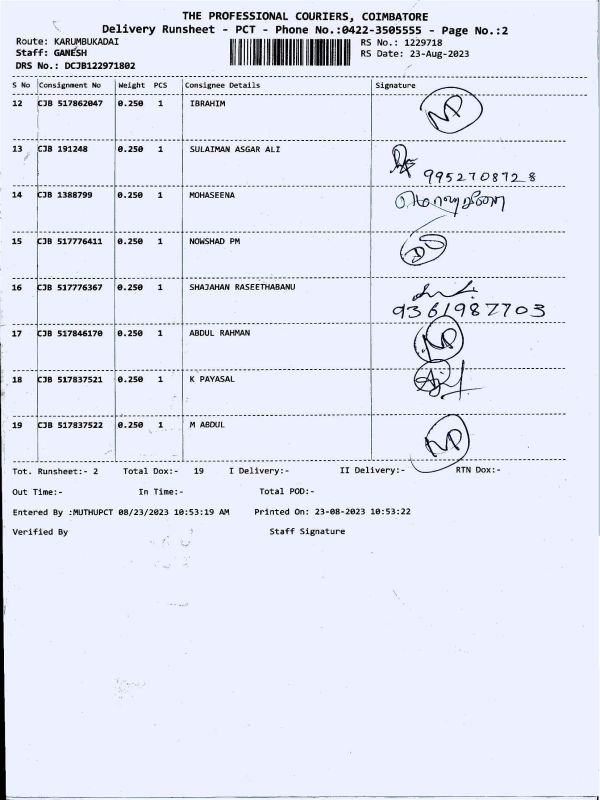 THE PROFESSIONAL COURIERS, COIMBATORE
Delivery Runsheet - PCT - Phone No.:0422-3505555 - Page No.:2
Route: KARUMBUKADAI RS No.: 1229718
Staff: GANESH RS Date: 23-Aug-2023
DRS No.: DCJB122971802
S No Consignment No Weight PCS Consignee Details Signature
12 CJB 517862047 0.250 1 IBRAHIM NP
13 CJB 191248 0.250 1 SULAIMAN ASGAR ALI
9952708728
14 CJB 1388799 0.250 1 MOHASEENA
15 CJB 517776411 0.250 1 NOWSHAD PM
16 CJB 517776367 0.250 1 SHAJAHAN RASEETHABANU
9361987703
17 CJB 517846170 0.250 1 ABDUL RAHMAN NP
18 CJB 517837521 0.250 1 K PAYASAL
19 CJB 517837522 0.250 1 M ABDUL NP
Tot. Runsheet:- 2 Total Dox:- 19 I Delivery:- II Delivery:- RTN Dox:-
Out Time:- In Time:- Total POD:-
Entered By :MUTHUPCT 08/23/2023 10:53:19 AM Printed On: 23-08-2023 10:53:22
Verified By Staff Signature